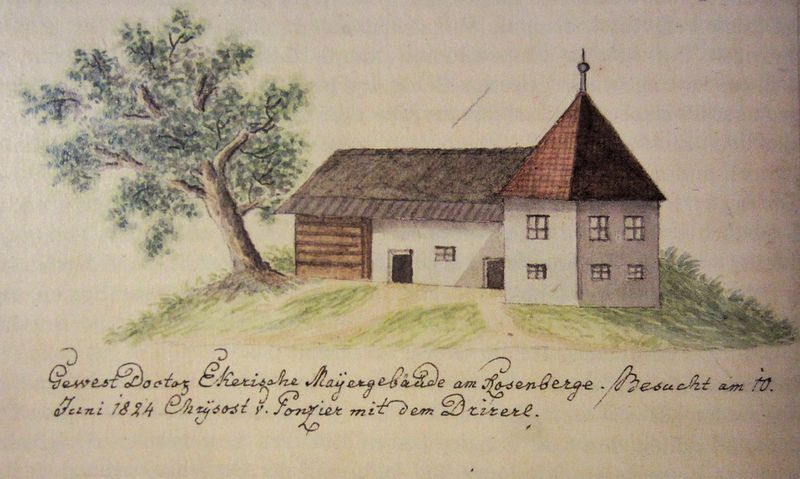 Gewest Doctor Ekerische Maÿergebäude am Rosenberge. Besucht am 10.
Juni 1824 Chrÿsost v. Ponzier mit dem